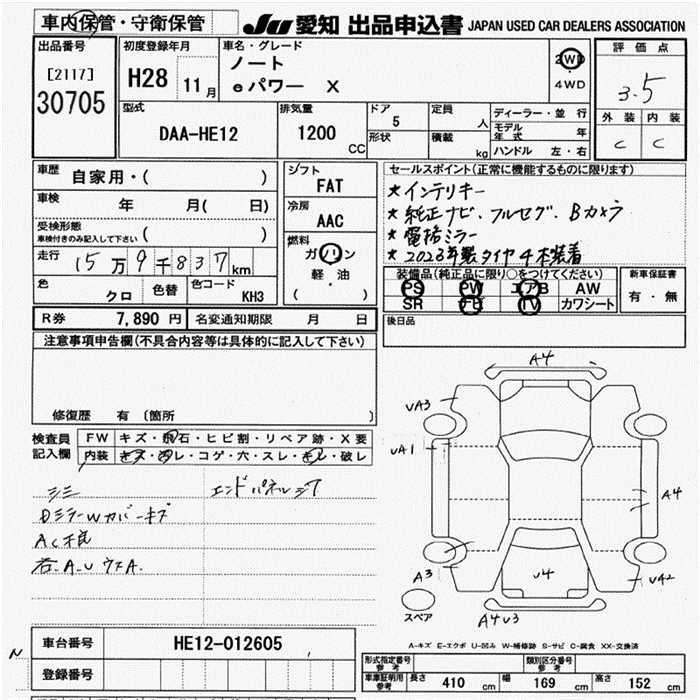 車内保管・守衛保管
JU 愛知 出品申込書 JAPAN USED CAR DEALERS ASSOCIATION
出品番号
[2117]
30705
初度登録年月
H28 11月
車名・グレード
ノート
eパワー X
2WD
4WD
評価点
3.5
外装 内装
C C
型式
DAA-HE12
排気量
1200 CC
ドア
5
形状
定員
人
積載
kg
ディーラー・並行
モデル年式 年
ハンドル 左・右
車歴
自家用・( )
車検
年 月( 日)
受検形態
車検付きのみ記入して下さい ( )
走行
15万9千837km
色
クロ
色替
色コード
KH3
シフト
FAT
冷房
AAC
燃料
ガソリン
軽・油
( )
セールスポイント(正常に機能するものに限ります)
★インテリキー
★純正ナビ、フルセグ、Bカメラ
★電格ミラー
★2023年製タイヤ4本装着
装備品(純正品に限り○をつけてください)
PS PW エアB AW
SR ナビ TV カワシート
新車保証書
有・無
R券 7,890円
名変通知期限 月 日
後日品
注意事項申告欄(不具合内容等は具体的に記入して下さい)
修復歴 有 〔箇所 〕
検査員記入欄
FW キズ・飛石・ヒビ割・リペア跡・X要
内装 キズ・汚レ・コゲ・穴・スレ・キレ・破レ
シミ
DミラーWカバーキズ
AC不良
右-A.U ウスA.
エンドパネルシワ
A4
VA3
VA1
A4
A3
V4
VA2
A4V3
スペア
A-キズ E-エクボ U-凹み W-補修跡 S-サビ C-腐食 XX-交換済
N
車台番号 HE12-012605
登録番号
型式指定番号 参考
類別区分番号 参考
車庫証明用 参考
長さ 410 cm
幅 169 cm
高さ 152 cm